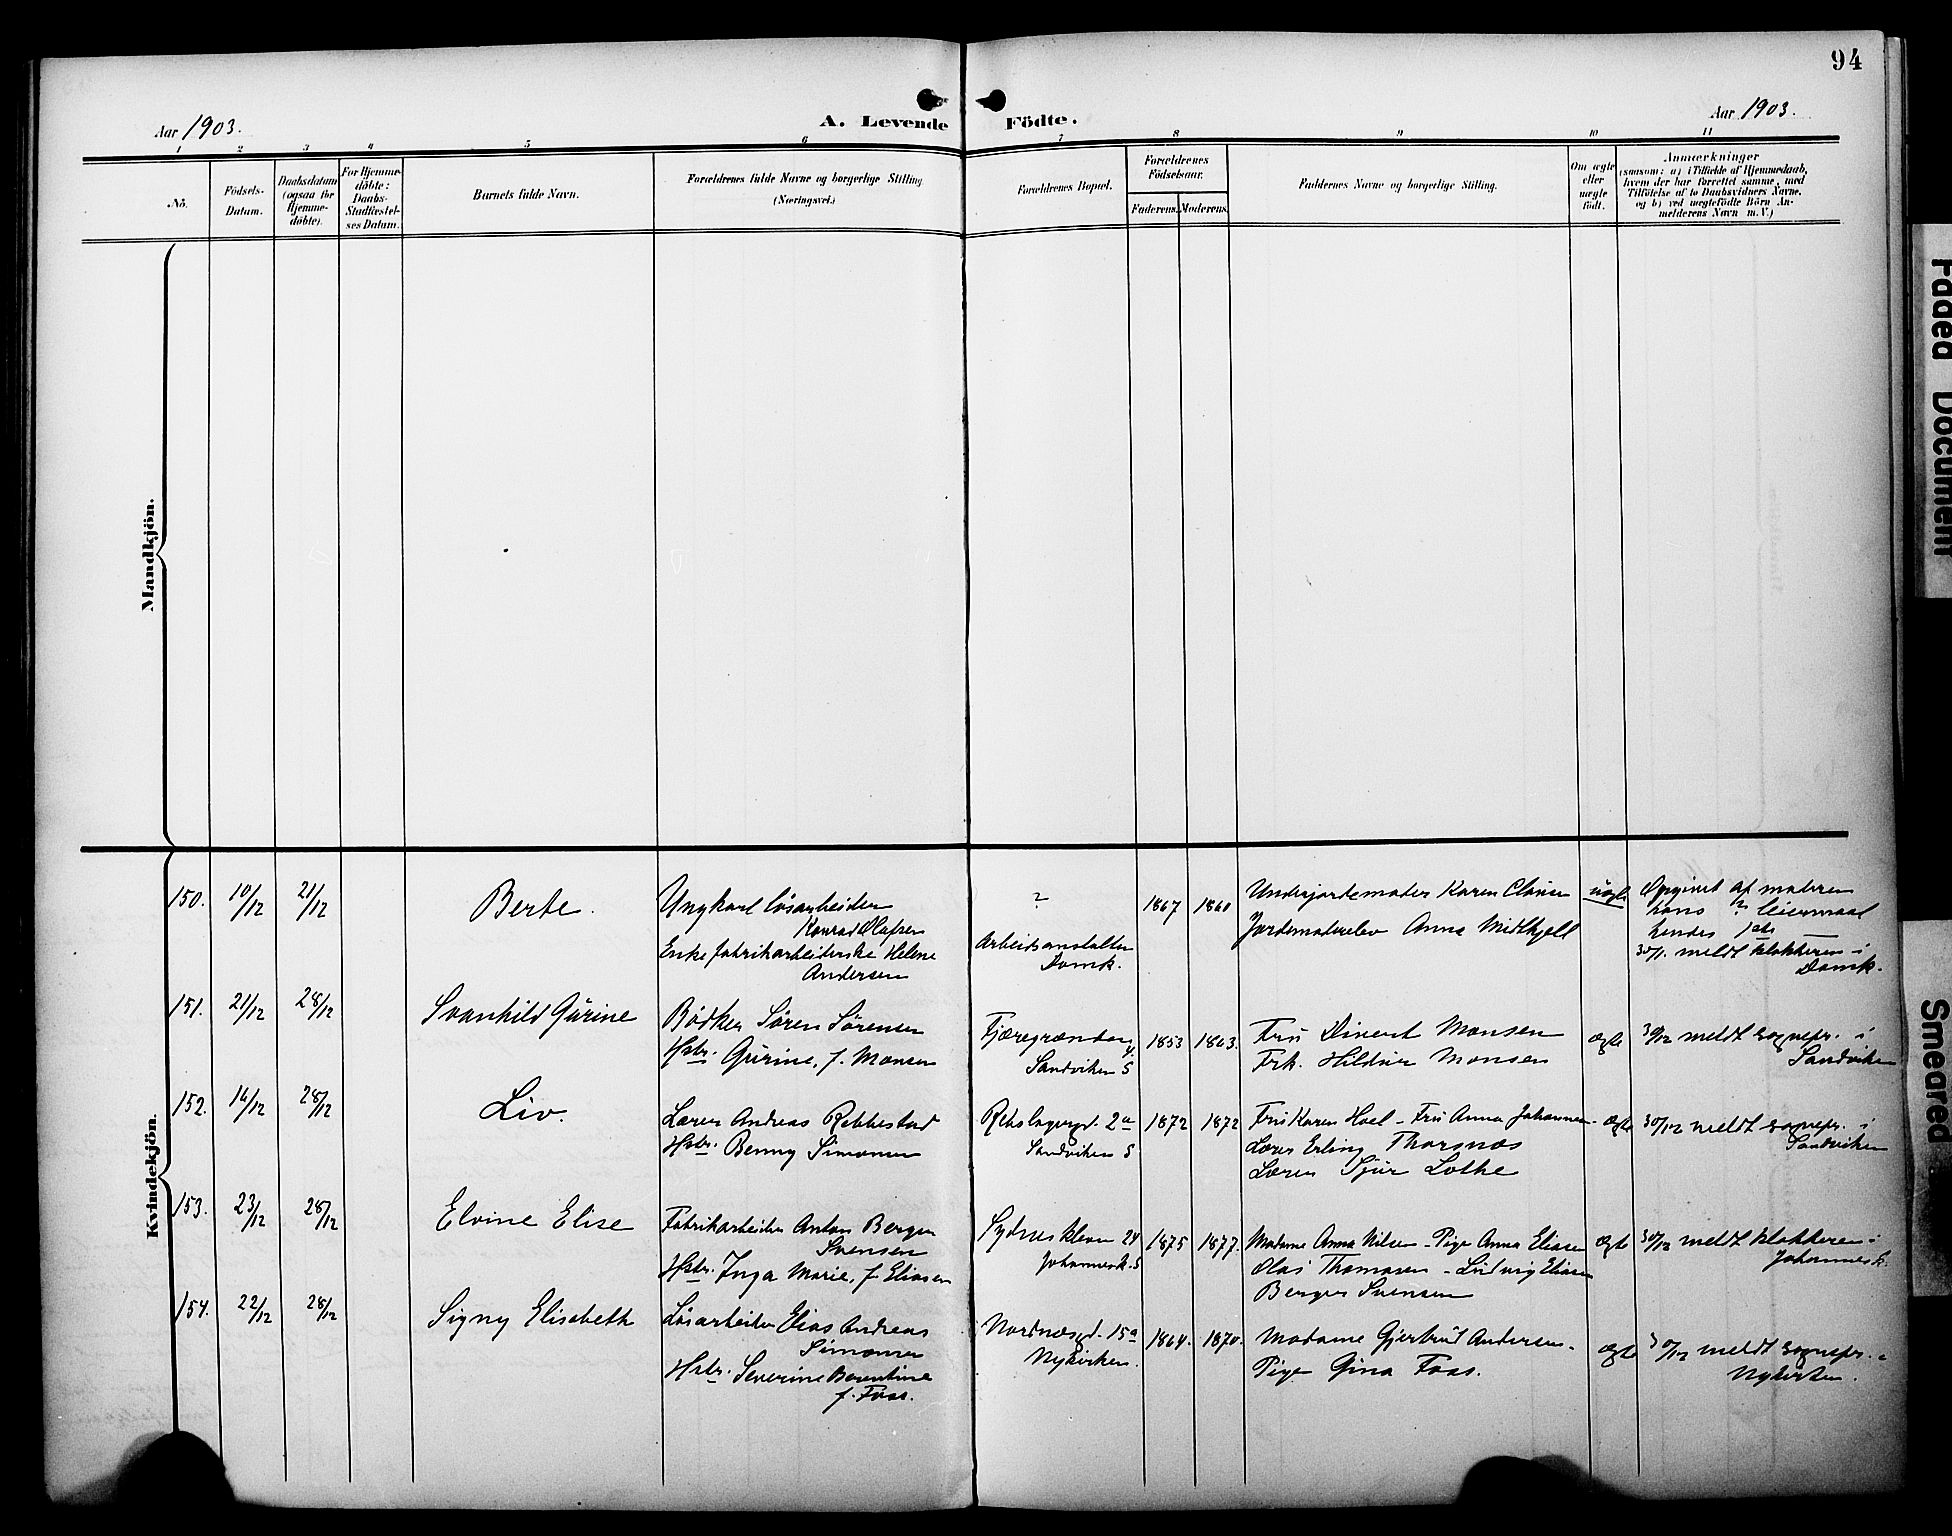 94
Aar 1903.
A. Levende Födte.
Aar 1903.
1 2 3 4 5 6 7 8 9 10 11
No.
Födsels-
Datum.
Daabsdatum
(ogsaa for
Hjemme-
döbte).
For Hjemme-
döbte:
Daabs-
Stadfæstel-
ses Datum.
Barnets fulde Navn.
Forældrenes fulde Navne og borgerlige Stilling
(Næringsvei.)
Forældrenes Bopæl.
Forældrenes
Födselsaar.
Faderens. Moderens.
Faddernes Navne og borgerlige Stilling.
Om ægte
eller
uægte
födt.
Anmærkninger
(saasom: a) i Tilfælde af Hjemmedaab,
hvem der har forrettet samme, med
Tilföielse af to Daabsvidners Navne.
og b) ved uægtefödte Börn An-
melderens Navn m. V.)
Mandkjön.
Kvindekjön.
150. 10/12 21/12
Berte.
Ungkarl løsarbeider
Konrad Olafsen
Enke fabrikarbeiderske Helene
Andersen
?
Arbeidsanstalten
Domk.
1867
Underjordemoder Karen Clausen
Jordemoderelev Anna Midtkjell
uægte
Opgivet af moderen
hans ? leiermaal
hendes 1ste
30/1. meldt klokkeren i
Domk.
151. 21/12 28/12
Svanhild Gurine
Bødker Søren Sørensen
Hstr. Gurine, f. Monsen
4.
Sandviken S
1853 1863.
Fru Monsen
Frk. Hildur Monsen
ægte
30/12 meldt sognepr. i
Sandviken
152. 14/12 28/12
Liv.
Lærer Andreas Rebbestad
Hstr. Benny Simonsen
2a
Sandviken S
1872 1872
Fru Karen Hoel - Fru Anna Johannesen -
Lærer Erling Thorsnæs
Lærer Sjur Lothe
ægte
30/12 meldt sognepr. i
Sandviken
153. 23/12 28/12
Elvine Elise
Fabrikarbeider Anton Berger
Svensen
Hstr. Inga Marie, f. Eliasen
Sydneskleven 24
Johannesk. S
1875 1877.
Madame Anna Nilsen - Pige Anna Eliasen
Olai Thomasen - Ludvig Eliasen
Berger Svensen
ægte
30/12 meldt klokkeren i
Johannesk.
154. 22/12 28/12
Signy Elisabeth
Løsarbeider Elias Andreas
Simonsen
Hstr. Severine Berentine
f. Foss.
Nordnæsgd. 15a
Nykirken.
1864. 1870.
Madame Gjertrud Andersen -
Pige Gina Foss.
ægte
30/12 meldt sognepr. i
Nykirken.
Faded Document
Smeared